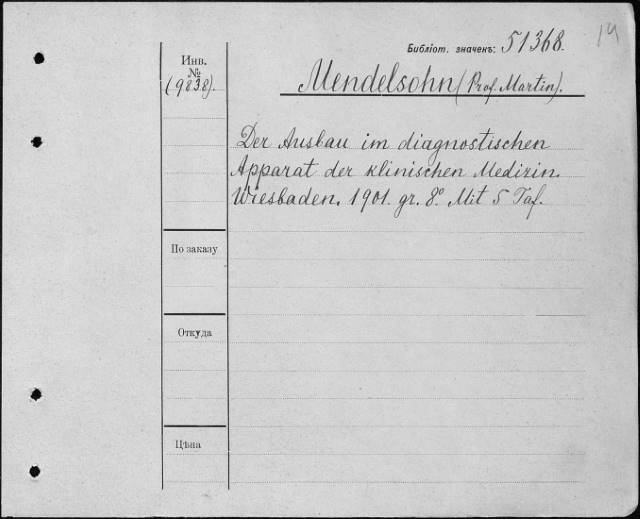 14
Библіот. значекъ: 51368.
Инв.
№
(9838).
Mendelsohn (Prof. Martin).
Der Ausbau im diagnostischen
Apparat der klinischen Medizin.
Wiesbaden. 1901. gr. 8° Mit 5 Taf.
По заказу
Откуда
Цѣна